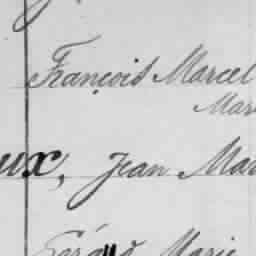 François Marcel
Mar
ux, Jean Mar
Géraud Marie